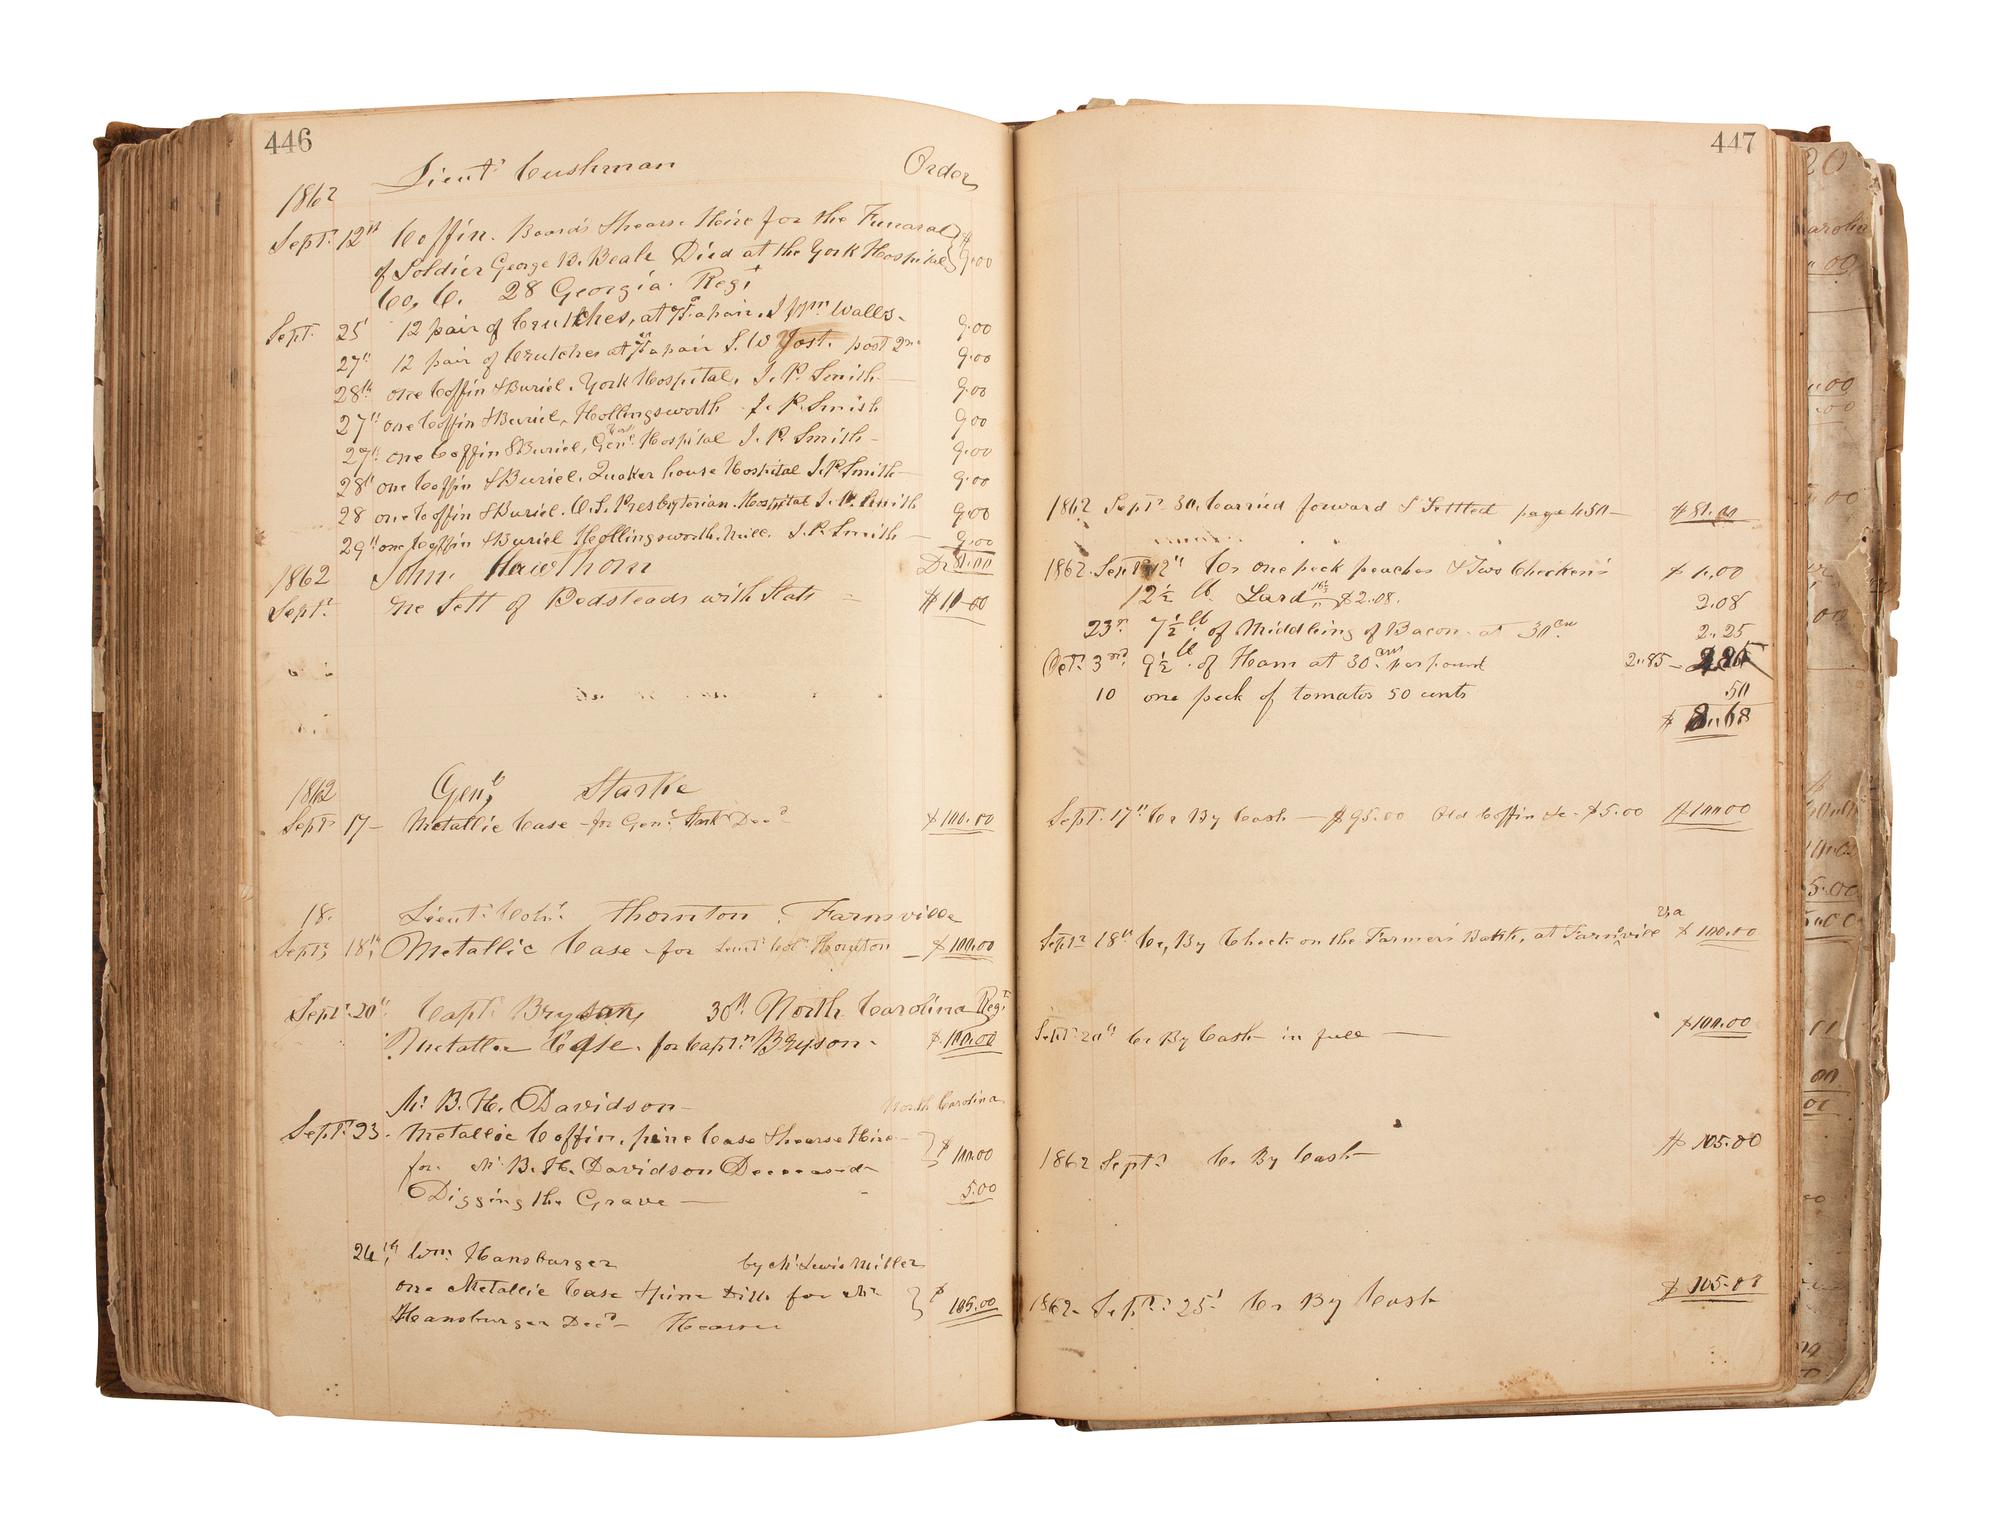 446
Lieut. Cushman Order
1862
Sept. 12th Coffin. Board & hearse Heire for the Funaral
of Soldier George B. Beale Died at the York Hospital $9.00
Co, C. 28 Georgia Regt
Sept. 25 12 pair of Crutches, at a pair. Wm Walls 9.00
27" 12 pair of Crutches at a pair S. W Yost. post 9.00
28th one Coffin & Buriel. York Hospital. J. P. Smith 9.00
27" one Coffin & Buriel, Hollingsworth J. P. Smith 9.00
27" one Coffin & Buriel, Genl. Hospital J. P. Smith 9.00
28" one Coffin & Buriel. Quaker house Hospital J. P. Smith 9.00
28 one Coffin & Buriel. O. S. Presbyterian. Hospital J. P. Smith 9.00
29" one Coffin & Buriel Hollingsworth. Mill. J. P. Smith 9.00
1862 John. Hawthorn Dr 81.00
Sept. one Sett of Bedsteads with Slats $10.00
1862 Genl, Starke
Sept 17 Metallic Case for Genl. Stark Decd $100.00
18. Lieut. Coln. Thornton. Farmville
Sept, 18th, Metallic Case for Lieut Col. Thornton $100.00
Sept. 20" Capt. Bryson, 30th North Carolina Regt
Metallic Case. for Captn. Bryson. $100.00
Mr B. H. Davidson North Carolina
Sept. 23. Metallic Coffin, pine Case & hearse Hire
for Mr. B. H. Davidson Deceased $100.00
Digging the Grave 5.00
24th, Wm. Hansburger by Mr Lewis Miller
one Metallic Case & pine for Mr
Hansburger Decd Hearse $105.00
447
1862 Sept. 30. Carried forward & Settled page 450 $81.00
1862. Sept 12" Cr one peck peaches & Two Chickens $1.00
12½ lb. Lard $2.08. 2.08
23d. 7½ lb. of Middling of Bacon at 30 cen 2.25
Oct. 3rd. 9½ lb. of Ham at 30 cen per pound 2.85
10 one peck of tomatos 50 cents 50
$8.68
Sept. 17" Cr By Cash $95.00 Old Coffin &c. $5.00 $100.00
Sept. 18th Cr, By Check on the Farmers Bank, at Farmville Va $100.00
Sept. 20" Cr By Cash in full $100.00
1862 Sept. Cr By Cash $105.00
1862 Sept. 25. Cr By Cash $105.00